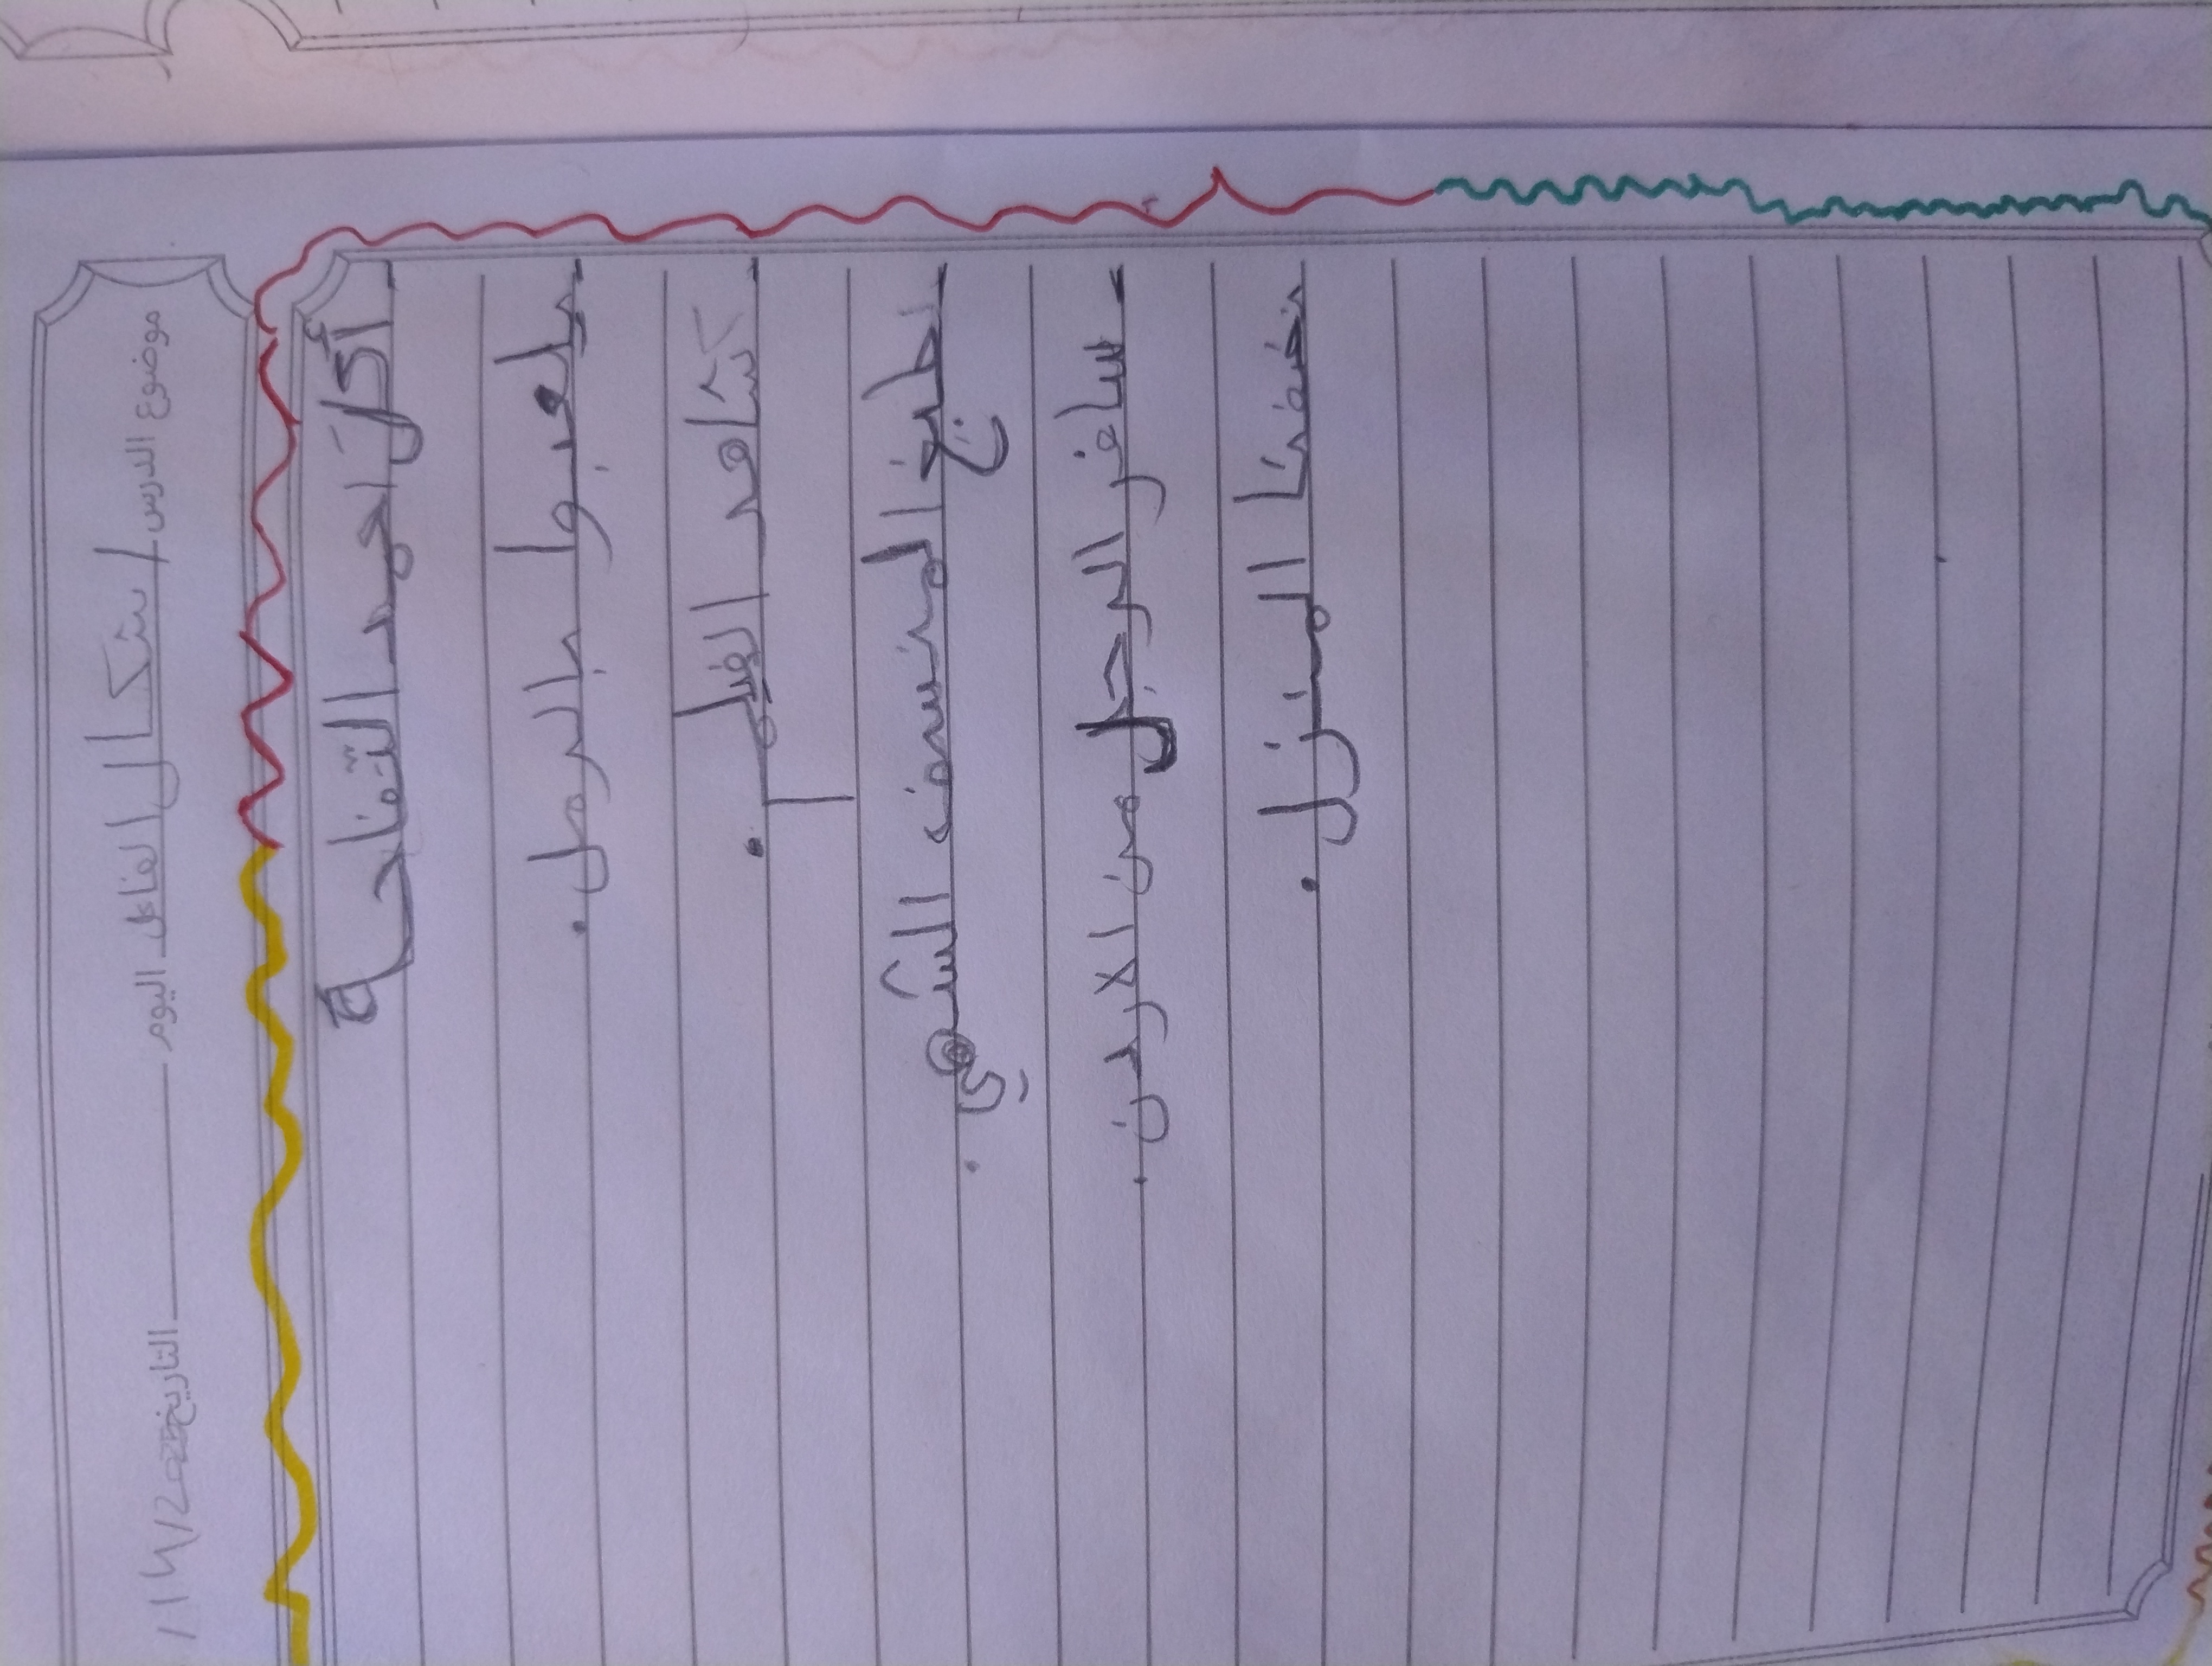 موضوع الدرس / شكال الفاعل اليوم التاريخ
- أكل احمد التفاحة
- يلعبوا بالرمل.
- شاهد الفيلم.
- طبخ المنسف الشهي.
- سافر الرجل من الاردن.
- نضفنا المنزل.